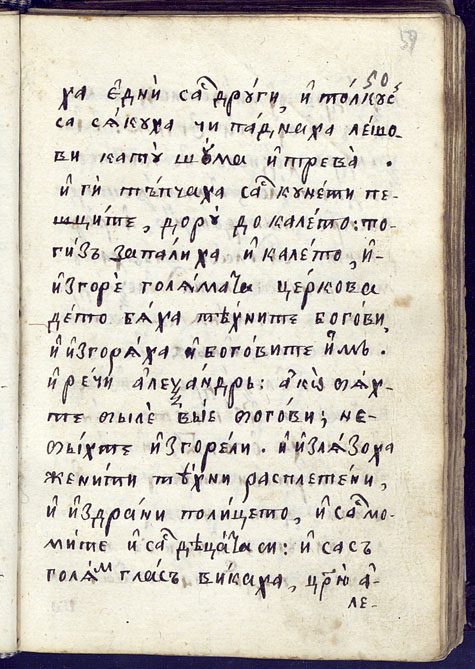 59
50
ха є҆дни̑ саⷭ҇ дрꙋ́ги, и҆ то́лкꙋⷭ҇
са сѧ́кꙋха чи па́днаха ле́шо-
ви катꙋ̀ шꙋ́ма и҆ трева̀ .
и҆ ги́ тъпчаха саⷭ҇ кꙋне́ти пе-
щи́те, дорꙋ̀ до кале́то: по-
ги́зъ запали́ха и҆ кале́то, и҆-
и҆згорѐ голѧ́мата це́ркова
де́то бѧ́ха тѣ́хните бо́гови,
и҆ и҆згорѧ́ха и҆ бо́говите и҆мъ .
и҆ ре́чи а҆леѯа́ндръ: а҆кѡ̀ мѧх-
те мылѐ вы́е мо́гови; не-
мы́хте и҆згоре́ли . и҆ и҆злѧ́зоха
жени́ти тѣ́хни расплете́ни,
и҆ и҆здра́ни поли́цето, и҆ саⷭ҇ мо-
ми́те и҆ саⷭ҇ дѣца́та си: и҆ сасъ
голѧ́ⷨ гла́съ ви́каха, цр҃ю̀ а҆-
ле-